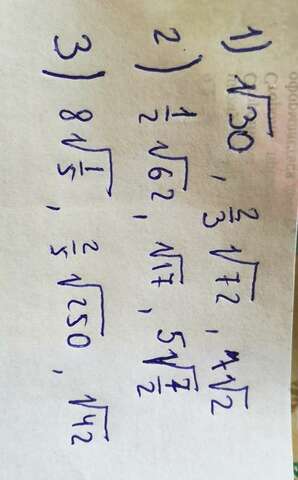 1) √30, 2/3 √72, 7√2
2) 1/2 √62, √17, 5√7/2
3) 8√1/5, 2/5 √250, √42